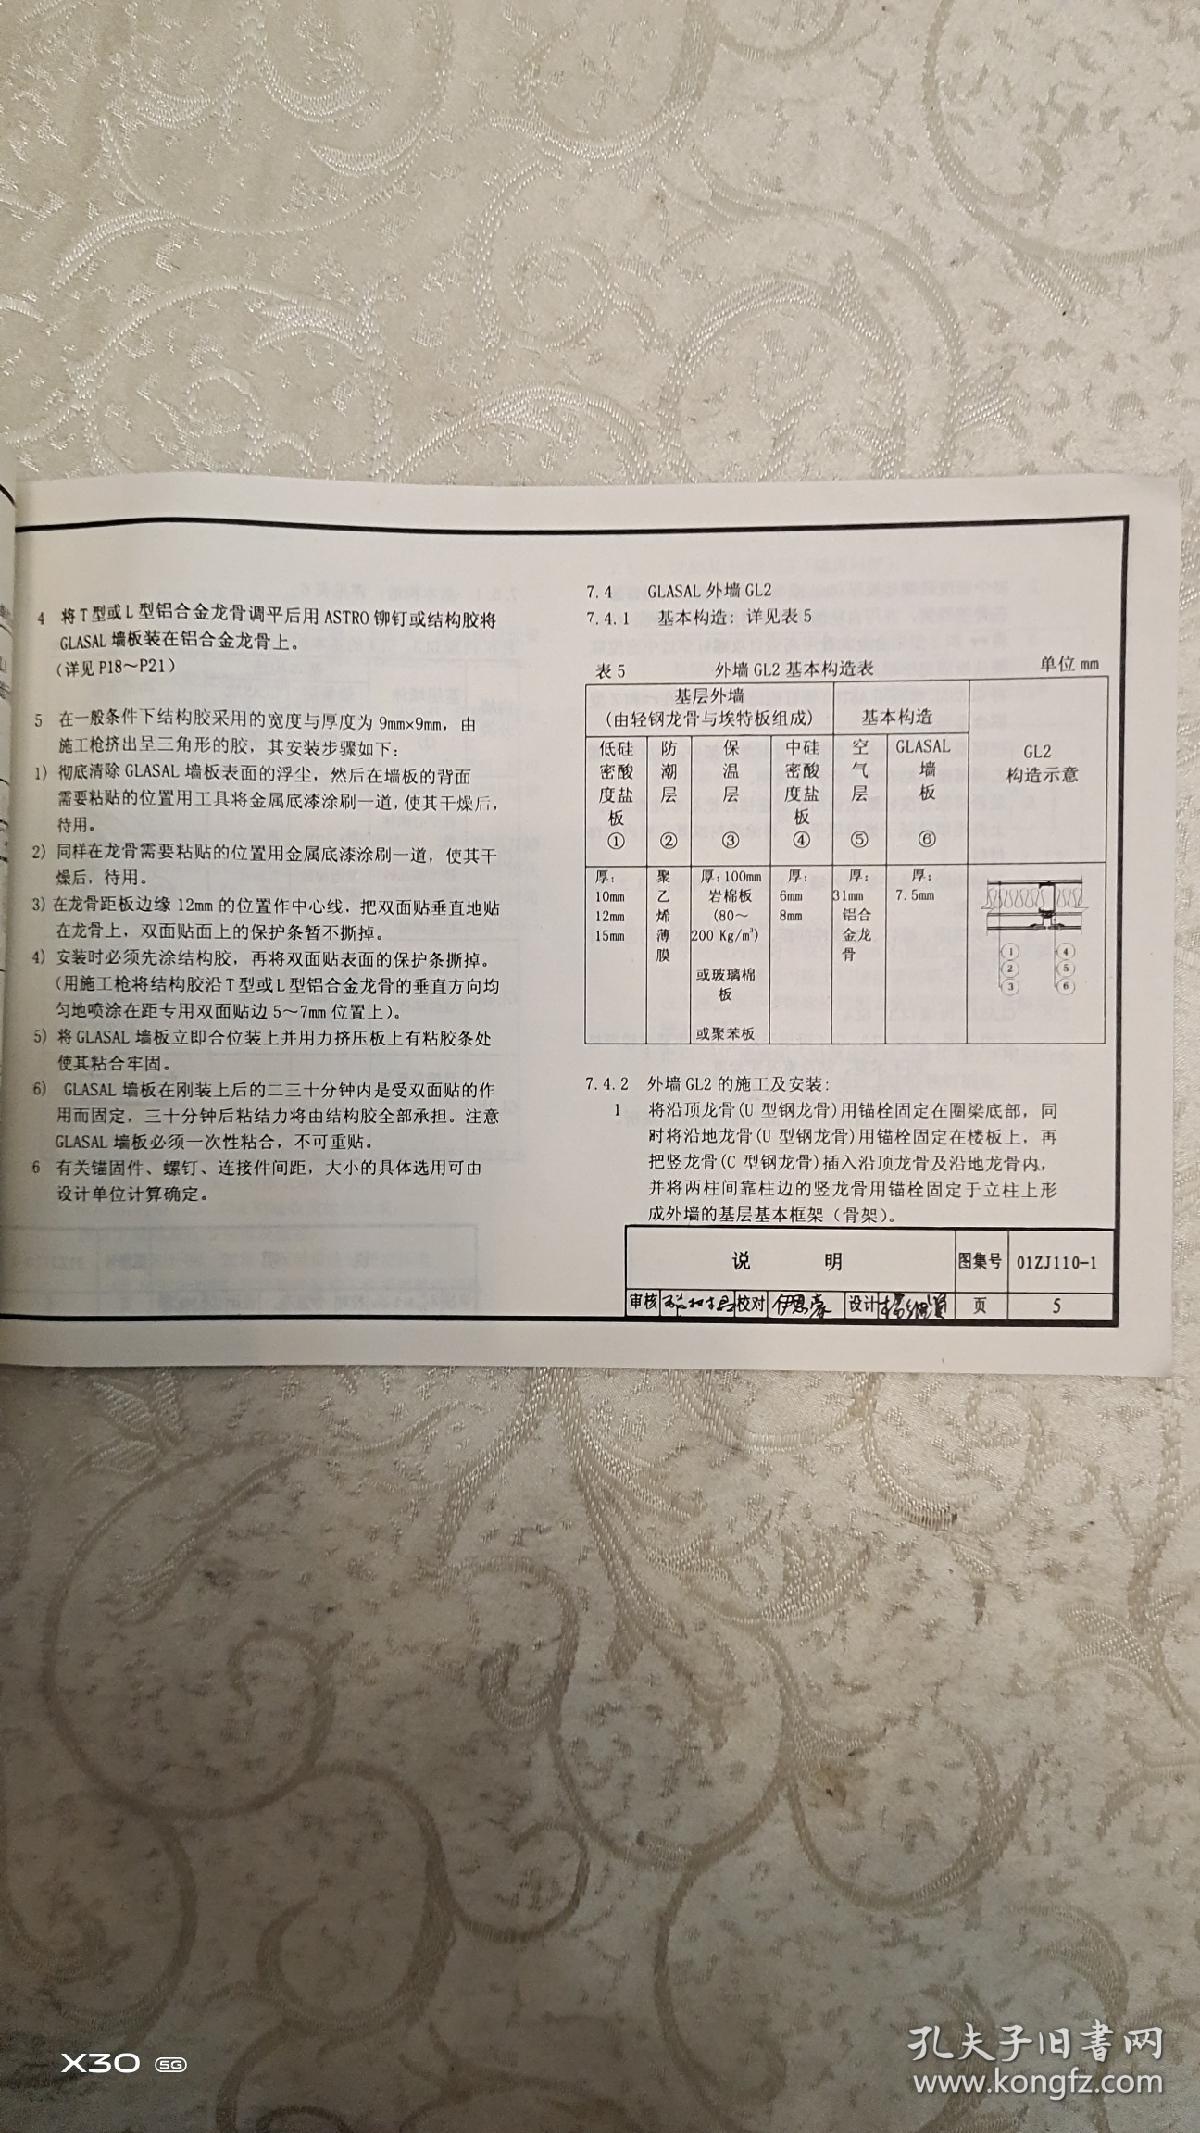 4 将T型或L型铝合金龙骨调平后用ASTRO铆钉或结构胶将
GLASAL墙板装在铝合金龙骨上。
(详见P18～P21)
5 在一般条件下结构胶采用的宽度与厚度为9mm×9mm，由
施工枪挤出呈三角形的胶，其安装步骤如下：
1) 彻底清除GLASAL墙板表面的浮尘，然后在墙板的背面
需要粘贴的位置用工具将金属底漆涂刷一道，使其干燥后，
待用。
2) 同样在龙骨需要粘贴的位置用金属底漆涂刷一道，使其干
燥后，待用。
3) 在龙骨距板边缘12mm的位置作中心线，把双面贴垂直地贴
在龙骨上，双面贴面上的保护条暂不撕掉。
4) 安装时必须先涂结构胶，再将双面贴表面的保护条撕掉。
(用施工枪将结构胶沿T型或L型铝合金龙骨的垂直方向均
匀地喷涂在距专用双面贴边5～7mm位置上)。
5) 将GLASAL墙板立即合位装上并用力挤压板上有粘胶条处
使其粘合牢固。
6) GLASAL墙板在刚装上后的二三十分钟内是受双面贴的作
用而固定，三十分钟后粘结力将由结构胶全部承担。注意
GLASAL墙板必须一次性粘合，不可重贴。
6 有关锚固件、螺钉、连接件间距，大小的具体选用可由
设计单位计算确定。
7.4 GLASAL外墙GL2
7.4.1 基本构造：详见表5
表5 外墙GL2基本构造表 单位mm
基层外墙
(由轻钢龙骨与埃特板组成)
基本构造
GL2
构造示意
低硅
密酸
度盐
板
①
防
潮
层
②
保
温
层
③
中硅
密酸
度盐
板
④
空
气
层
⑤
GLASAL
墙
板
⑥
厚：
10mm
12mm
15mm
聚
乙
烯
薄
膜
厚：100mm
岩棉板
(80～
200 Kg/m³)
或玻璃棉
板
或聚苯板
厚：
6mm
8mm
厚：
31mm
铝合
金龙
骨
厚：
7.5mm
① ④
② ⑤
③ ⑥
7.4.2 外墙GL2的施工及安装：
1 将沿顶龙骨(U型钢龙骨)用锚栓固定在圈梁底部，同
时将沿地龙骨(U型钢龙骨)用锚栓固定在楼板上，再
把竖龙骨(C型钢龙骨)插入沿顶龙骨及沿地龙骨内，
并将两柱间靠柱边的竖龙骨用锚栓固定于立柱上形
成外墙的基层基本框架（骨架）。
说 明 图集号 01ZJ110-1
审核 校对 设计 页 5
X30 5G
孔夫子旧书网
www.kongfz.com